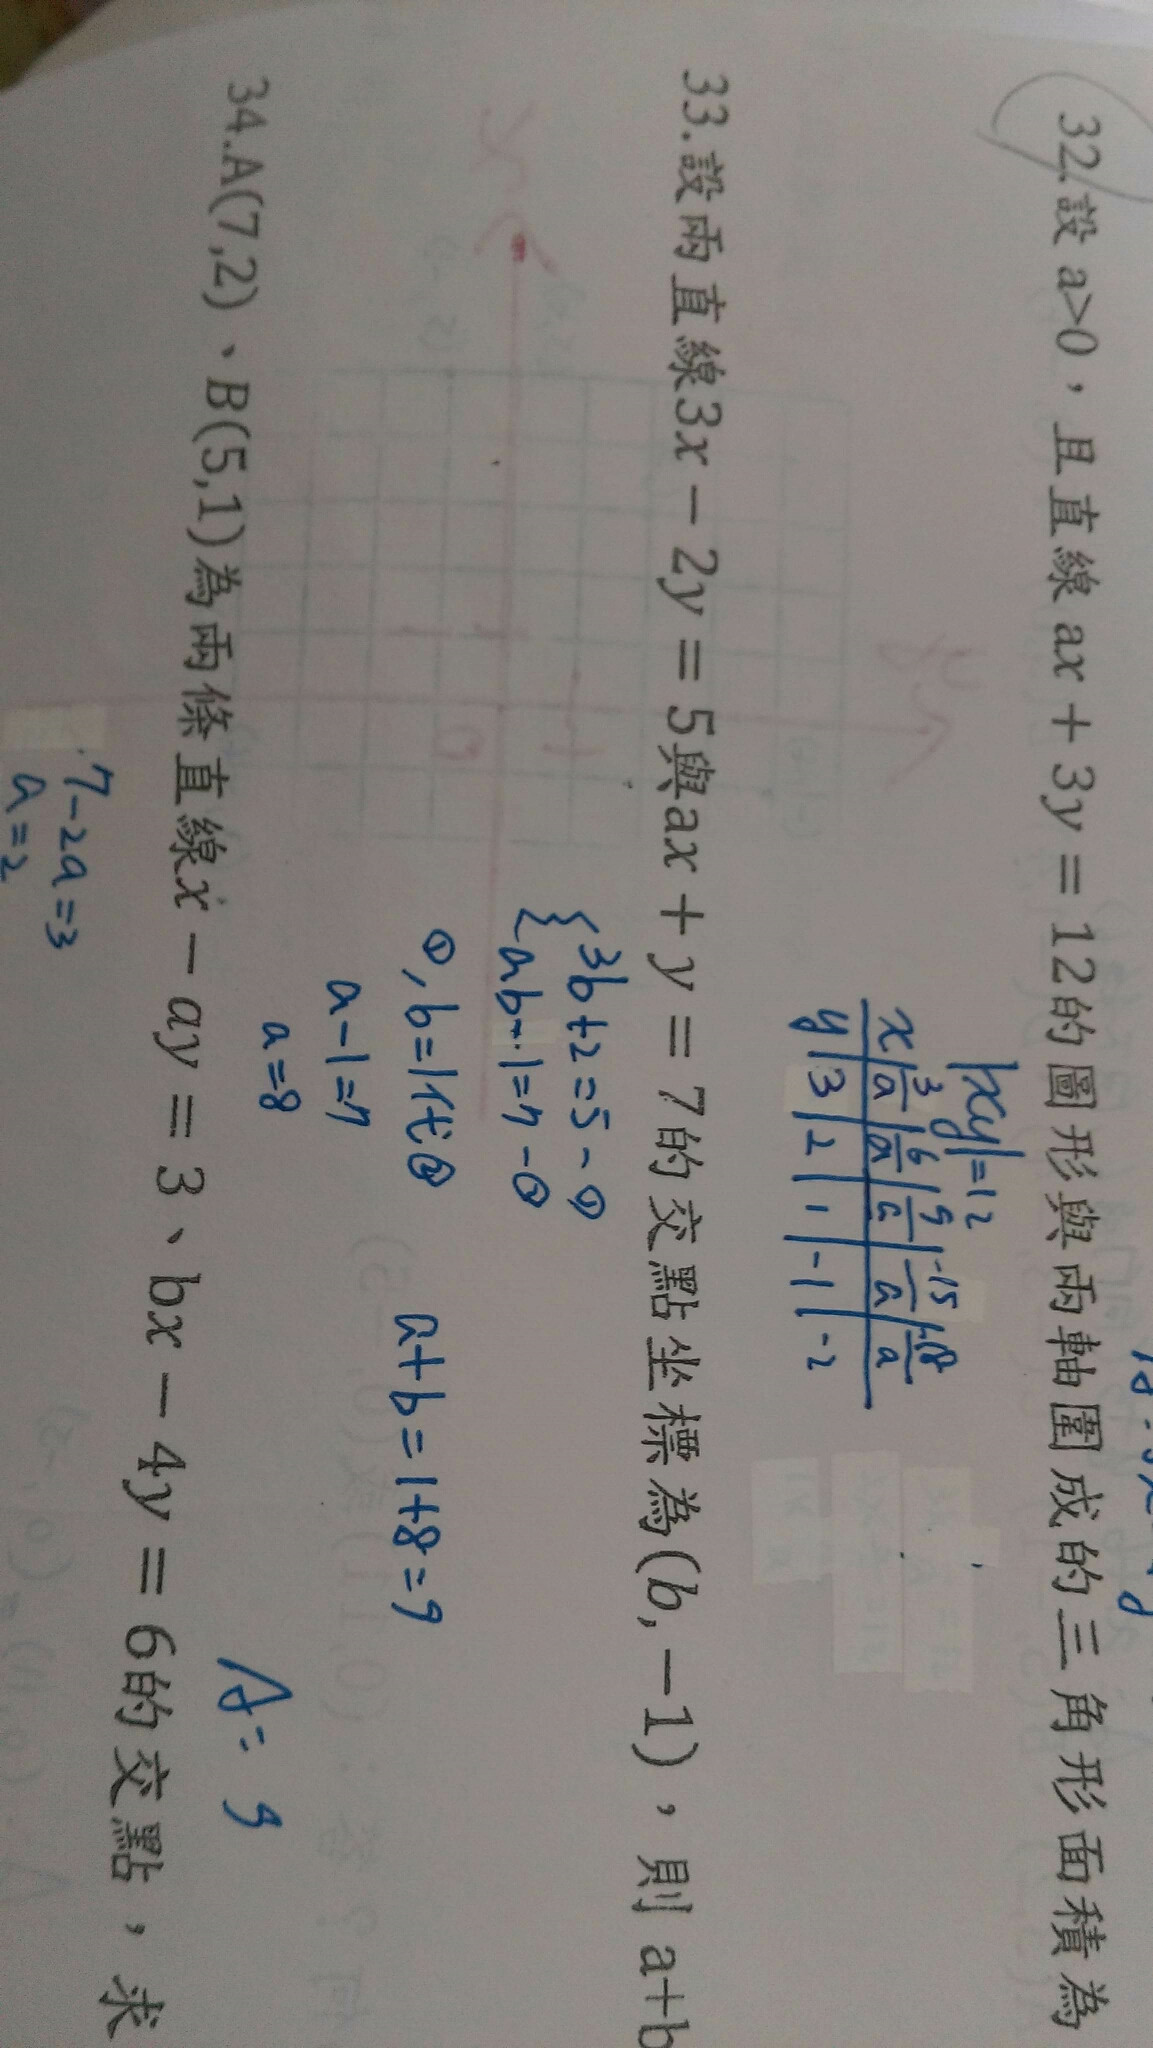 32.設 a>0，且直線 ax + 3y = 12的圖形與兩軸圍成的三角形面積為
|xy|=12
x 3/a 6/a 9/a -15/a -18/a
y 3 2 1 -1 -2
33.設兩直線3x − 2y = 5與ax + y = 7的交點坐標為(b, −1)，則 a+b
{3b+2=5-①
ab-1=7-②
①, b=1代②
a-1=7
a=8
a+b=1+8=9
A: 9
34.A(7,2)、B(5,1)為兩條直線x − ay = 3、bx − 4y = 6的交點，求
7-2a=3
a=2